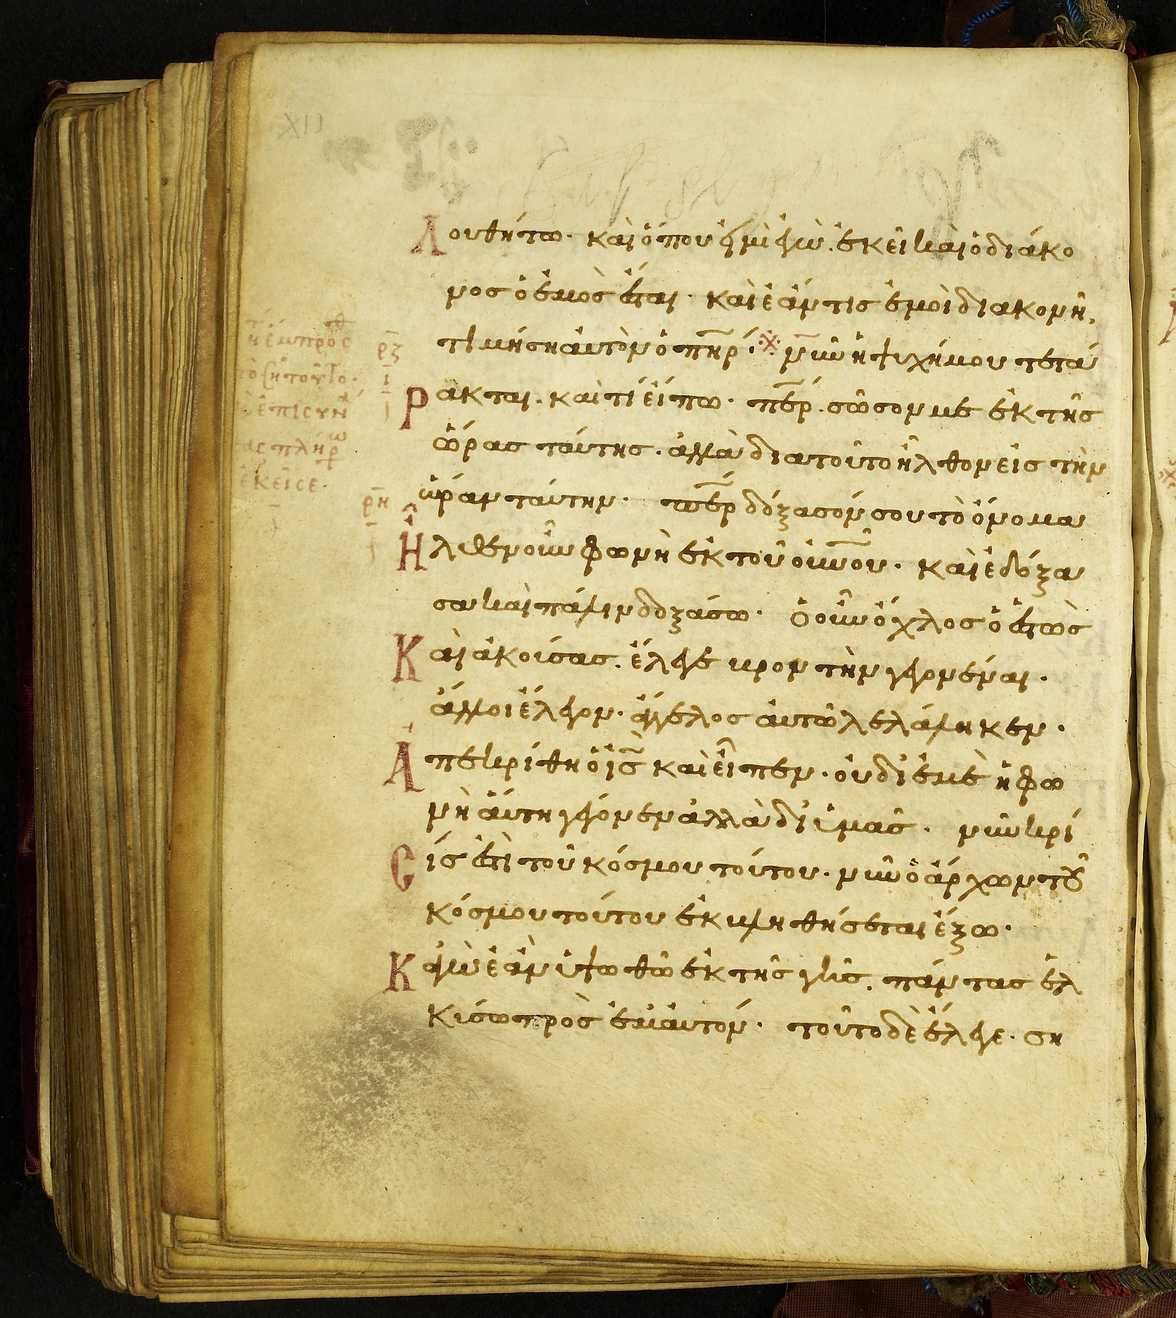 λουθήτω· καὶ ὅπου εἰμὶ ἐγὼ. ἐκεῖ καὶ ὁ διάκο
νος ὁ ἐμὸς ἔσται· καὶ ἐάν τις ἐμοὶ διακονῆ,
τιμήση αὐτὸν ὁ πηρ· νῦν ἡ ψυχή μου τετά
ρακται. καὶ τί εἴπω· περ. σῶσον με ἐκ τῆς
ὥρας ταύτης. ἀλλὰ διατοῦτο ἦλθον εἰς τὴν
ὥραν ταύτην· περ δόξασόν σου τὸ ὄνομα
Ἦλθεν οὖν φωνὴ ἐκ τοῦ οὐνοῦ. καὶ ἐδόξα
σα καὶ πάλιν δοξάσω· ὁ οὖν ὄχλος ὁ ἑστὼς
Καὶ ἀκούσας. ἔλεγε βροντὴν γεγονέναι.
ἄλλοι ἔλεγον. ἄγγελος αὐτῶ λελάληκεν.
Ἀπεκρίθη ὁ ις καὶ εἶπεν. οὐ δι ἐμὲ ἡ φω
νὴ αὕτη γέγονεν ἀλλὰ δι ὑμᾶς. νῦν κρί
σίς ἐστὶ τοῦ κόσμου τούτου. νῦν ὁ ἄρχων τοῦ
κόσμου τούτου ἐκβληθήσεται ἔξω·
Κἀγὼ ἐὰν ὑψωθῶ ἐκ τῆς γῆς. πάντας ἑλ
κύσω πρὸς ἐμαυτόν· τοῦτο δὲ ἔλεγε. ση
ρζ
ι
ρη
ι
ἐκεῖσε·